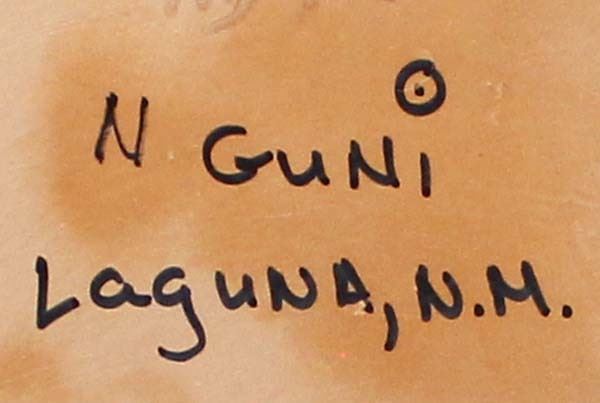 N GUNi
LaguNA, N.M.